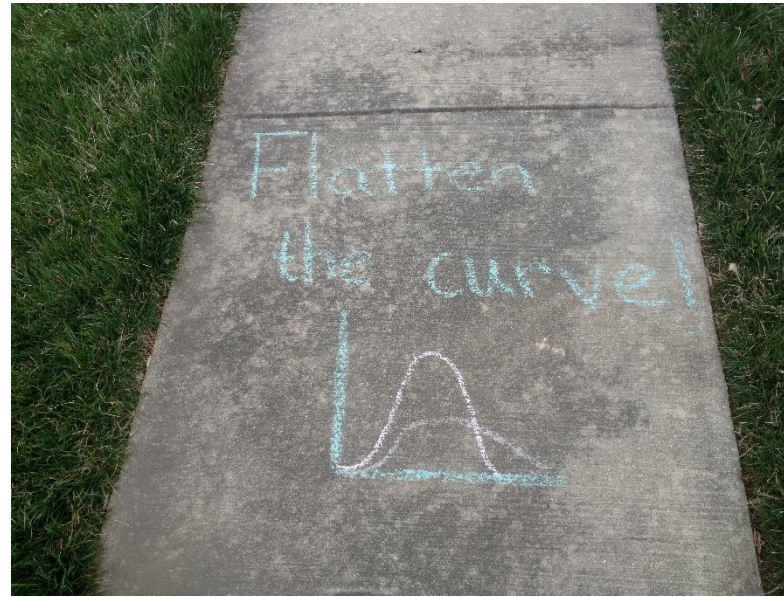 Flatten
the curve!